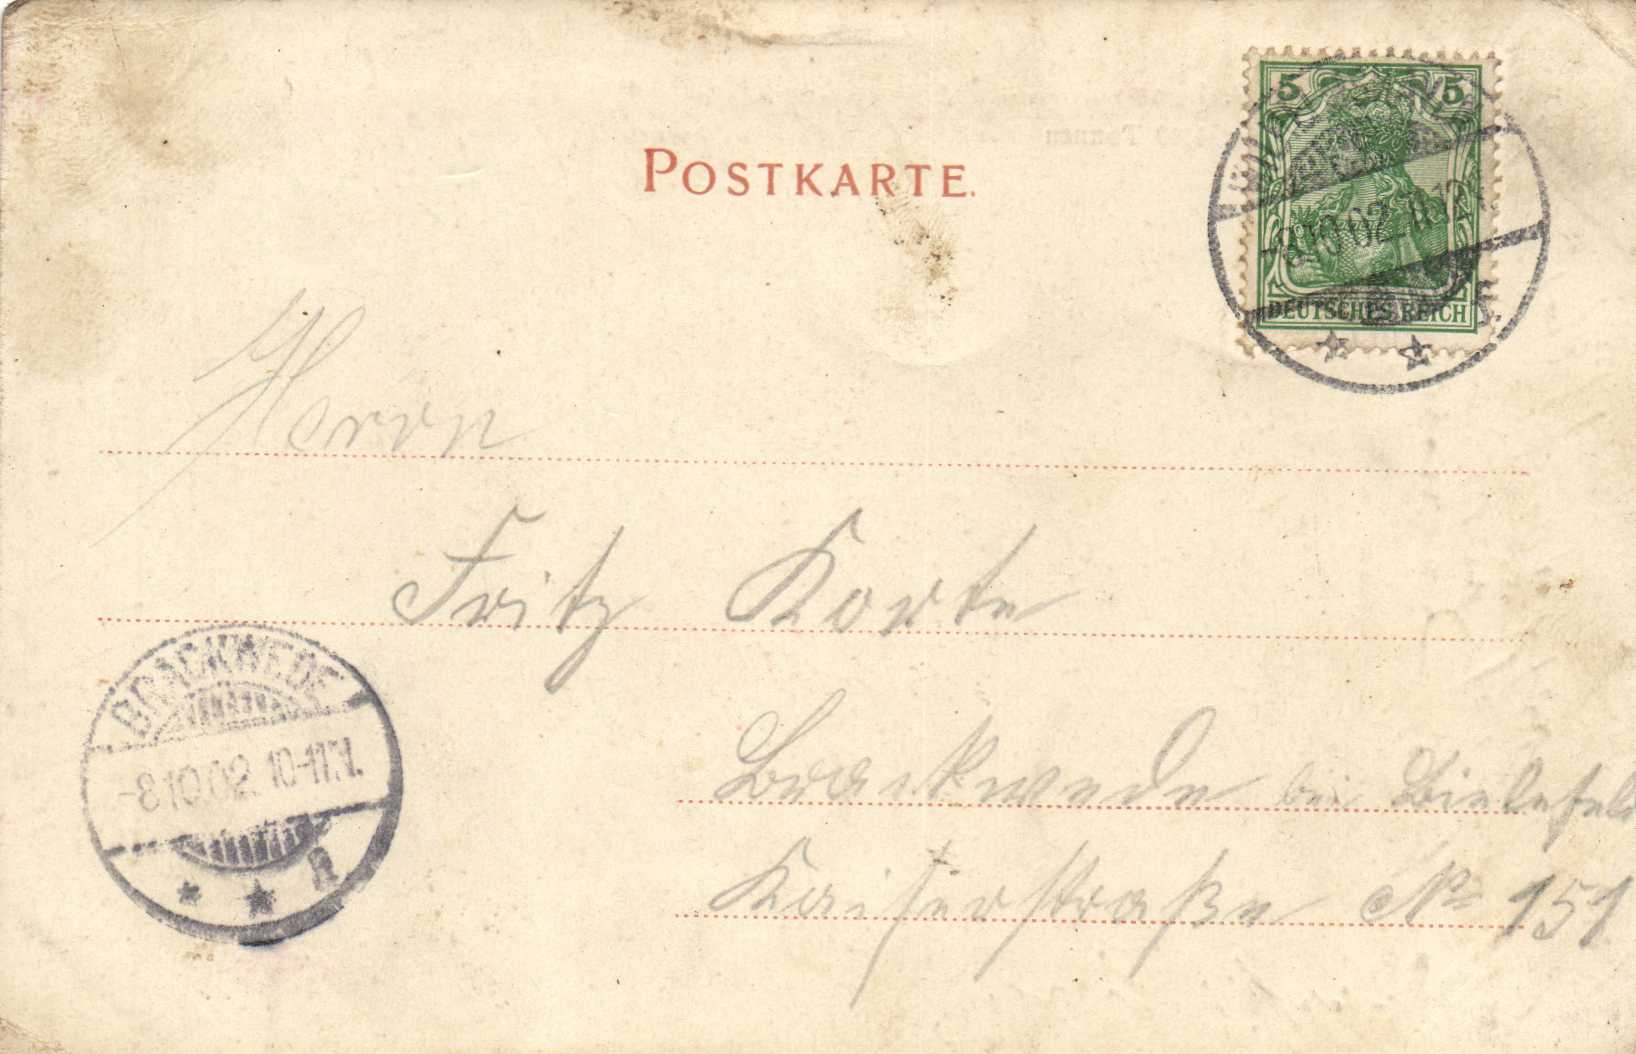 POSTKARTE.
5 5
-8.10.02. 11-12
DEUTSCHES REICH
Herrn
Fritz Korte
Brackwede bei Bielefeld
Kaiserstraße No 151
BRACKWEDE
-8.10.02. 10-11.V.
a